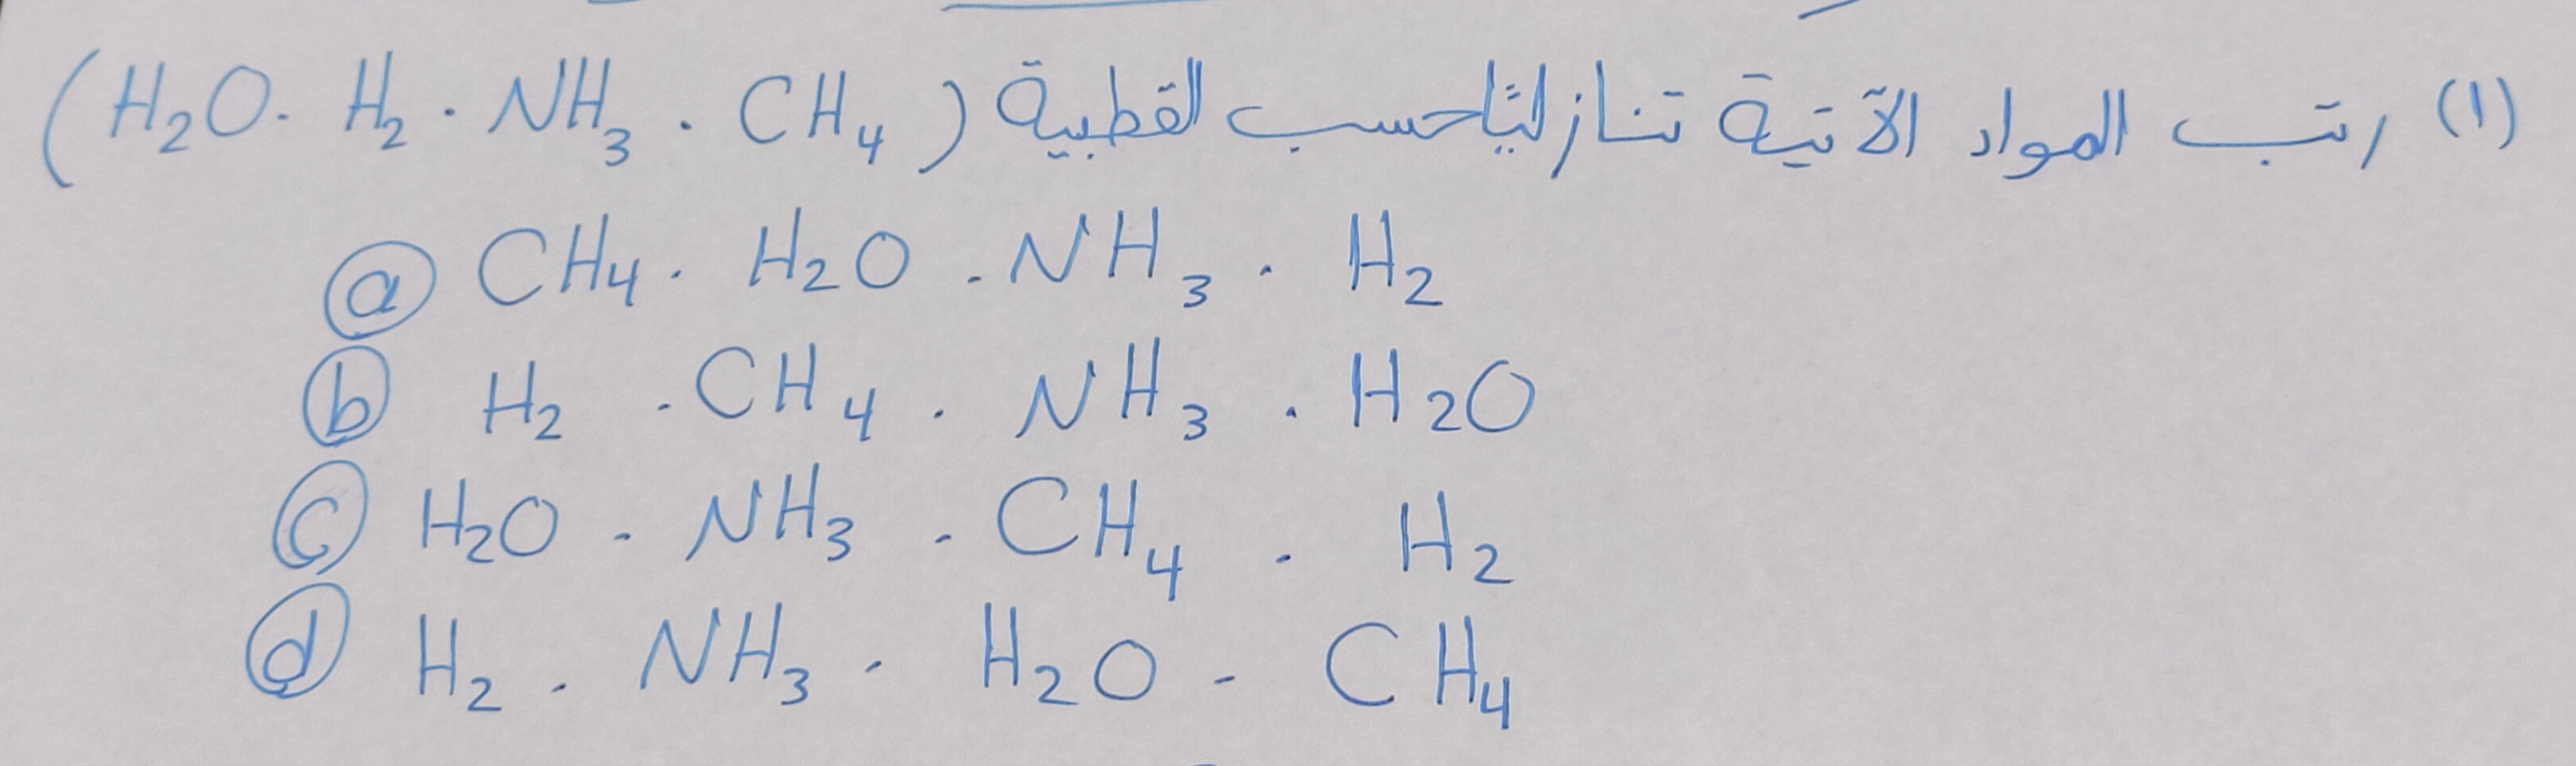 (١) رتب المواد الآتية تنازليًا حسب القطبية (H₂O . H₂ . NH₃ . CH₄)
ⓐ CH₄ . H₂O . NH₃ . H₂
ⓑ H₂ . CH₄ . NH₃ . H₂O
ⓒ H₂O . NH₃ . CH₄ . H₂
ⓓ H₂ . NH₃ . H₂O - CH₄